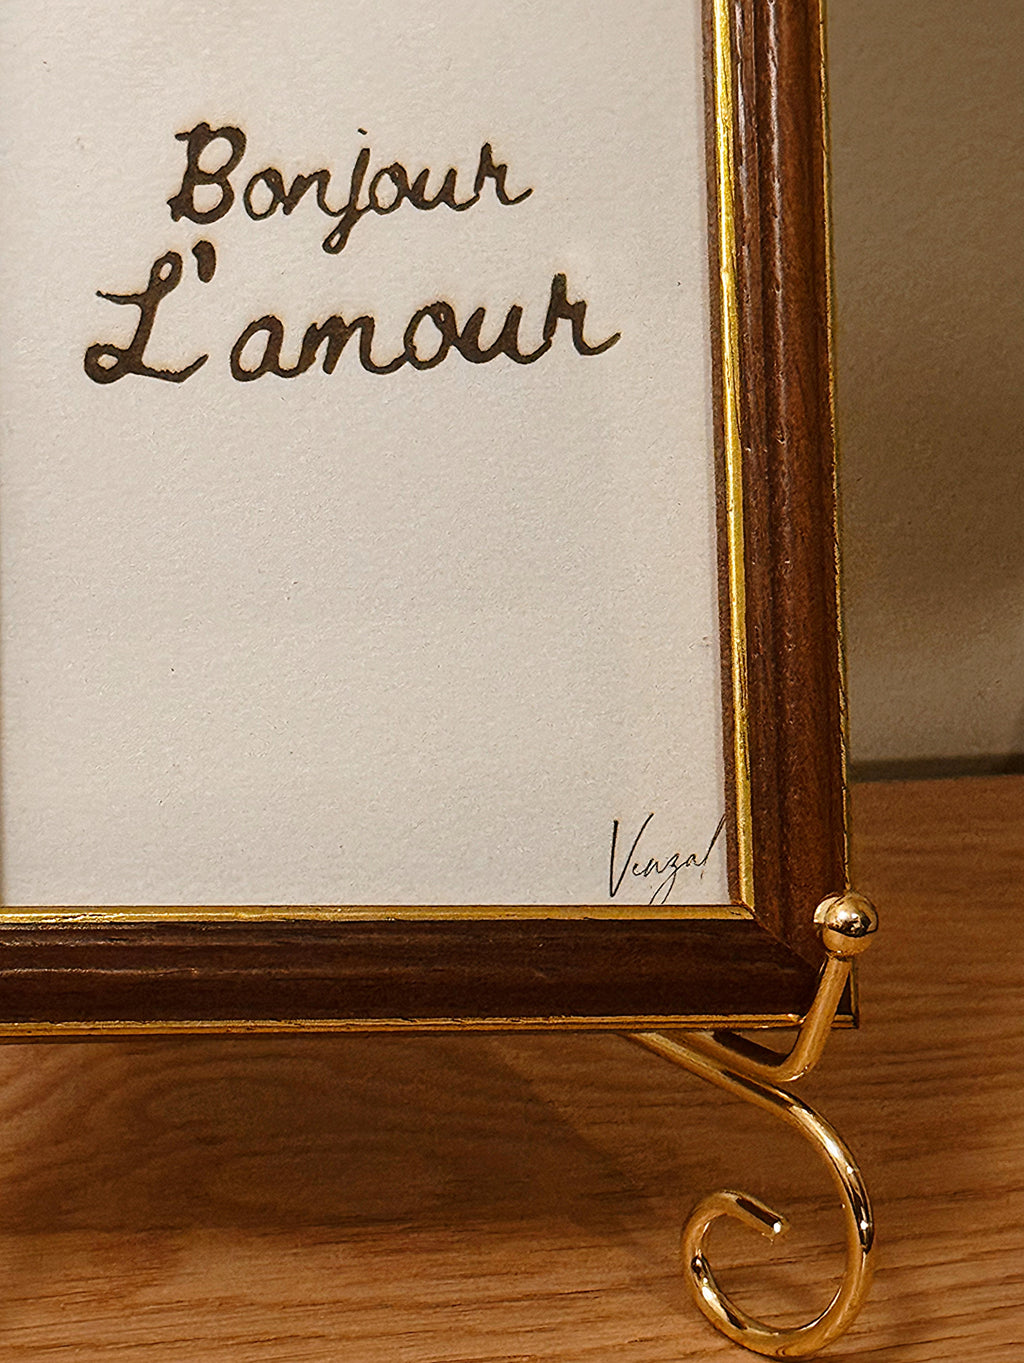 Bonjour
L'amour
Venzal